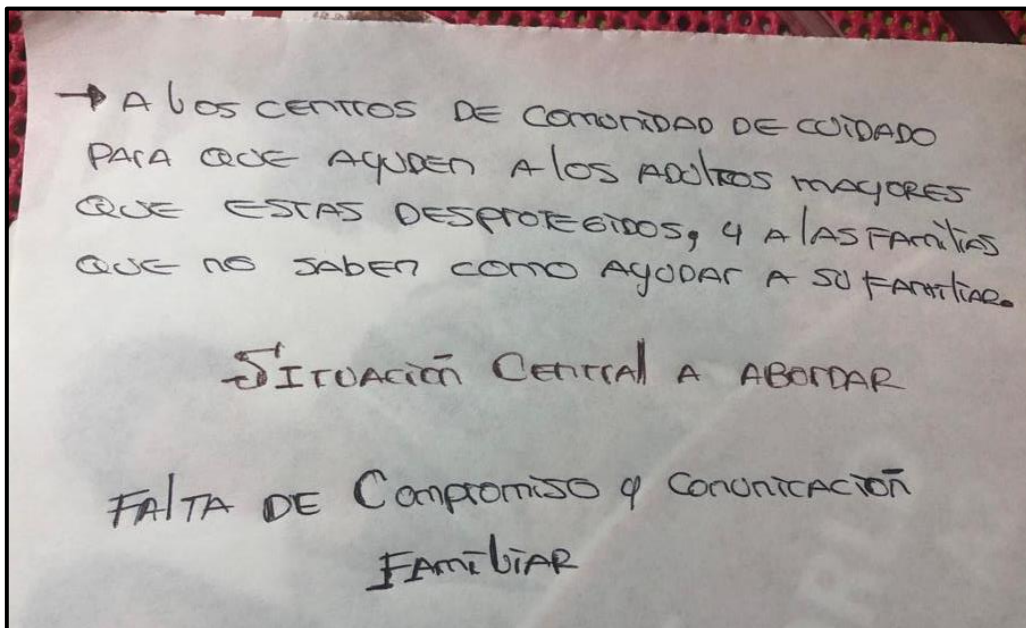 → A los centros de comunidad de cuidado
para que ayuden a los adultos mayores
que estas desprotegidos, y a las familias
que no saben como ayudar a su familiar.
Situación Central a abordar
Falta de Compromiso y comunicación
Familiar